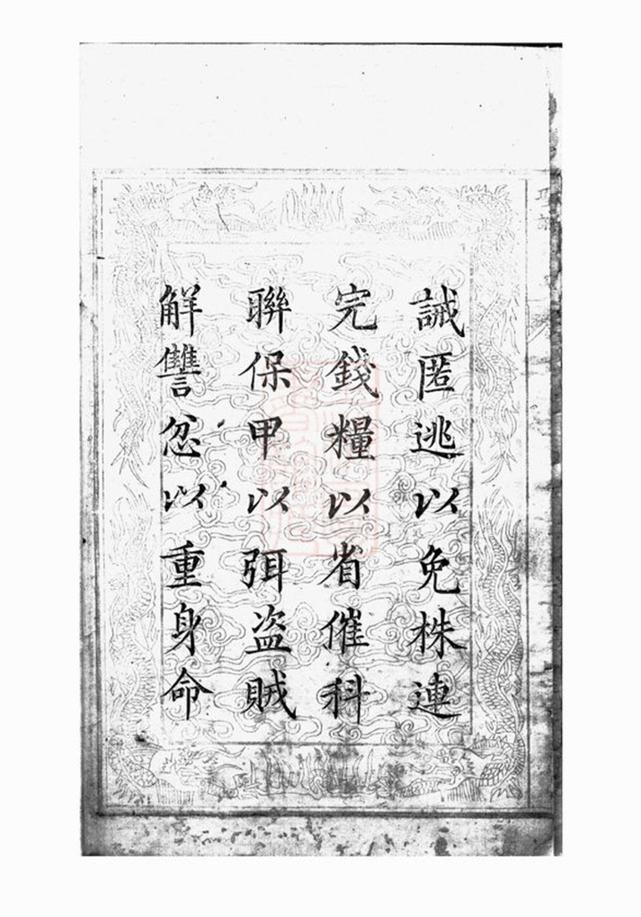 誡匿逃以免株連
完錢糧以省催科
聯保甲以弭盗賊
解讐忿以重身命